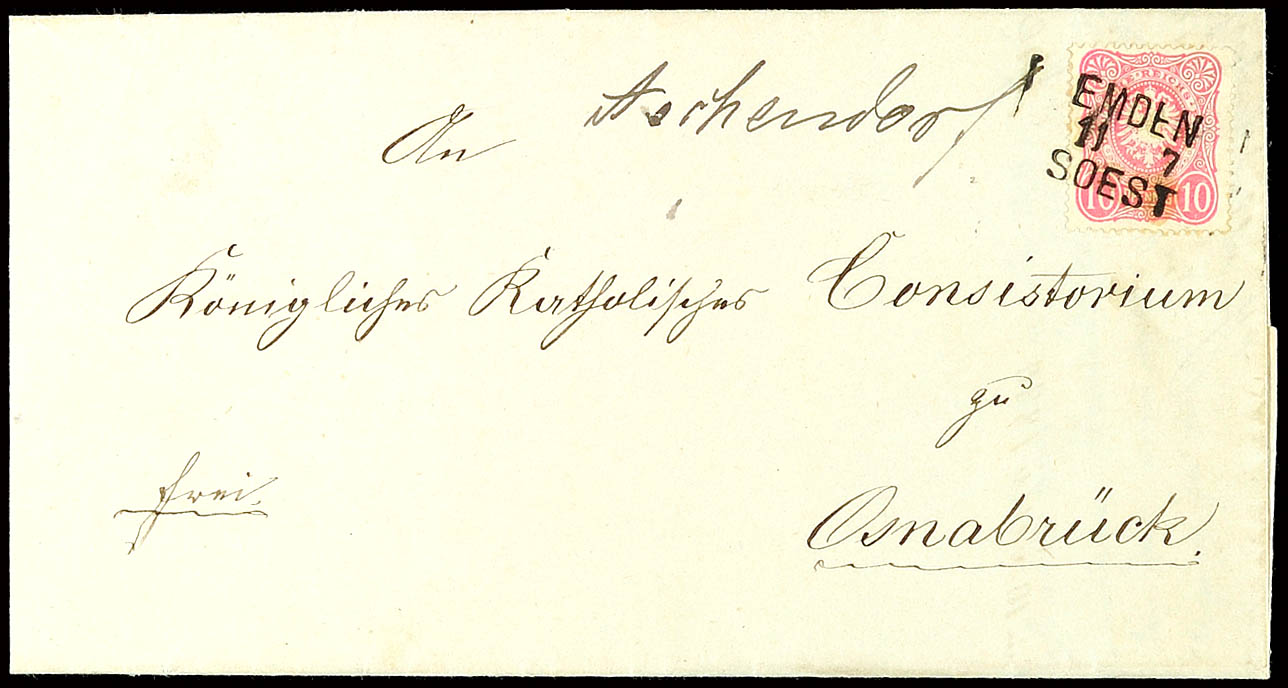 Aschendorf
An
EMDEN
11 7
SOEST
REICHS
10 10
Königliches Katholisches Consistorium
zu
frei.
Osnabrück.